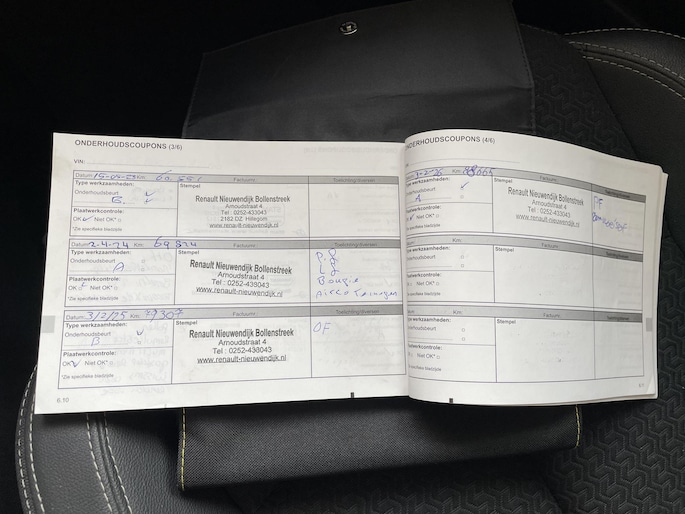 ONDERHOUDSCOUPONS (3/6)
VIN:
Datum: Km: Factuurnr.: Toelichting/diversen
Type werkzaamheden:
Stempel
Onderhoudsbeurt
B
Renault Nieuwendijk Bollenstreek
Arnoudstraat 4
Tel.: 0252-433043
2182 DZ Hillegom
www.renault-nieuwendijk.nl
Plaatwerkcontrole:
OK Niet OK*
*Zie specifieke bladzijde
Datum: 2-4-24 Km: 69 824 Factuurnr.: Toelichting/diversen
Type werkzaamheden:
Stempel
Onderhoudsbeurt
A
Renault Nieuwendijk Bollenstreek
Arnoudstraat 4
Tel.: 0252-433043
www.renault-nieuwendijk.nl
Bougie
Plaatwerkcontrole:
OK Niet OK*
*Zie specifieke bladzijde
Datum: 3/2/25 Km: Factuurnr.: Toelichting/diversen
Type werkzaamheden:
Stempel
Onderhoudsbeurt
B
Renault Nieuwendijk Bollenstreek
Arnoudstraat 4
Tel.: 0252-433043
www.renault-nieuwendijk.nl
OF
Plaatwerkcontrole:
OK Niet OK*
*Zie specifieke bladzijde
6.10
ONDERHOUDSCOUPONS (4/6)
Km: Factuurnr.:
Stempel
A
Renault Nieuwendijk Bollenstreek
Arnoudstraat 4
Tel.: 0252-433043
www.renault-nieuwendijk.nl
Niet OK*
*Zie specifieke bladzijde
Km: Factuurnr.:
Type werkzaamheden:
Stempel
Onderhoudsbeurt
Plaatwerkcontrole:
OK Niet OK*
*Zie specifieke bladzijde
Km: Factuurnr.:
Type werkzaamheden:
Stempel
Onderhoudsbeurt
Plaatwerkcontrole:
OK Niet OK*
*Zie specifieke bladzijde